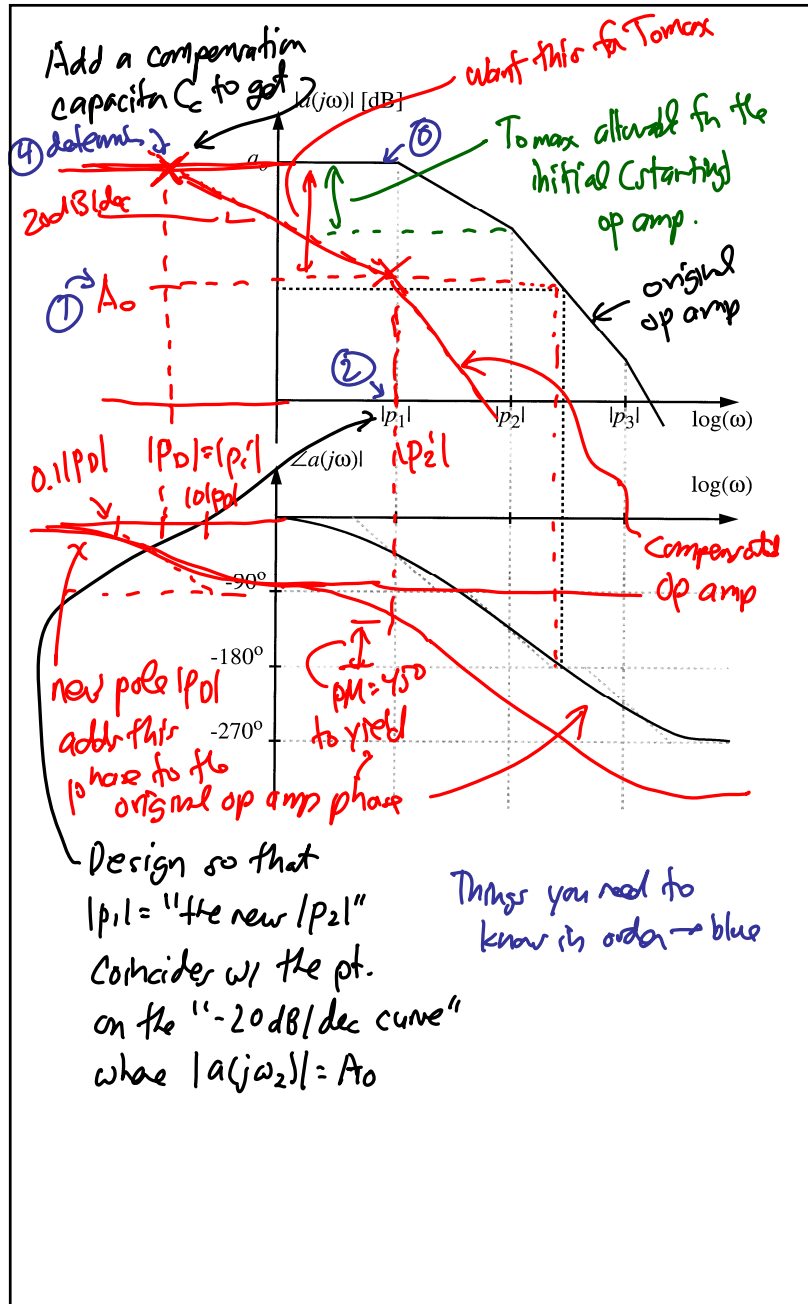 Add a compensation
capacitor Cc to get
|a(jω)| [dB]
want this for Tomax
④ determines
⓪
Tomax allowed for the
initial (starting)
op amp.
20dB/dec
① A₀
original
op amp
②
|p1| |p2| |p3| log(ω)
0.1|pD| |pD|=|p1'| ∠a(jω)| |p2'|
10|pD| log(ω)
compensated
op amp
-90°
-180°
-270°
new pole |pD|
adds this
phase to the
original op amp phase
PM=45°
to yield
Design so that
|p1| = "the new |p2|"
Coincides w/ the pt.
on the "-20 dB/dec curve"
where |a(jω2)| = A₀
Things you need to
know in order → blue